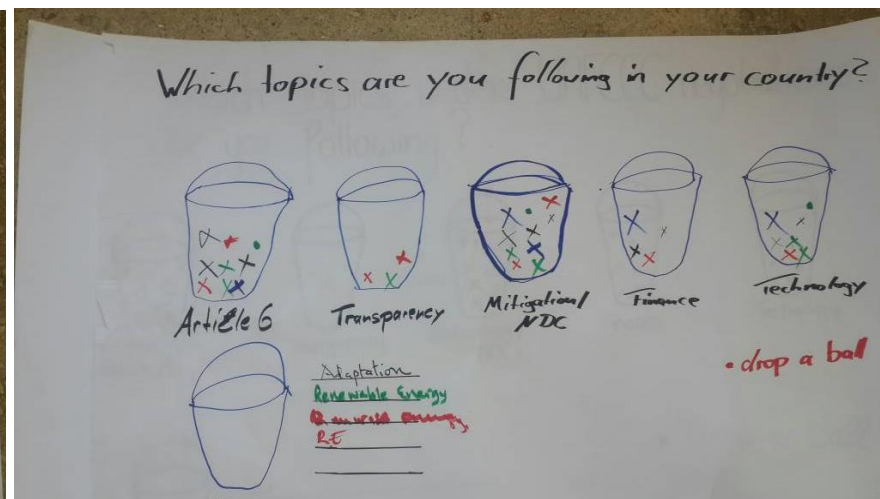 Which topics are you following in your country?
Article 6
Transparency
Mitigation/
NDC
Finance
Technology
• drop a ball
Adaptation
Renewable Energy
energy
R.E